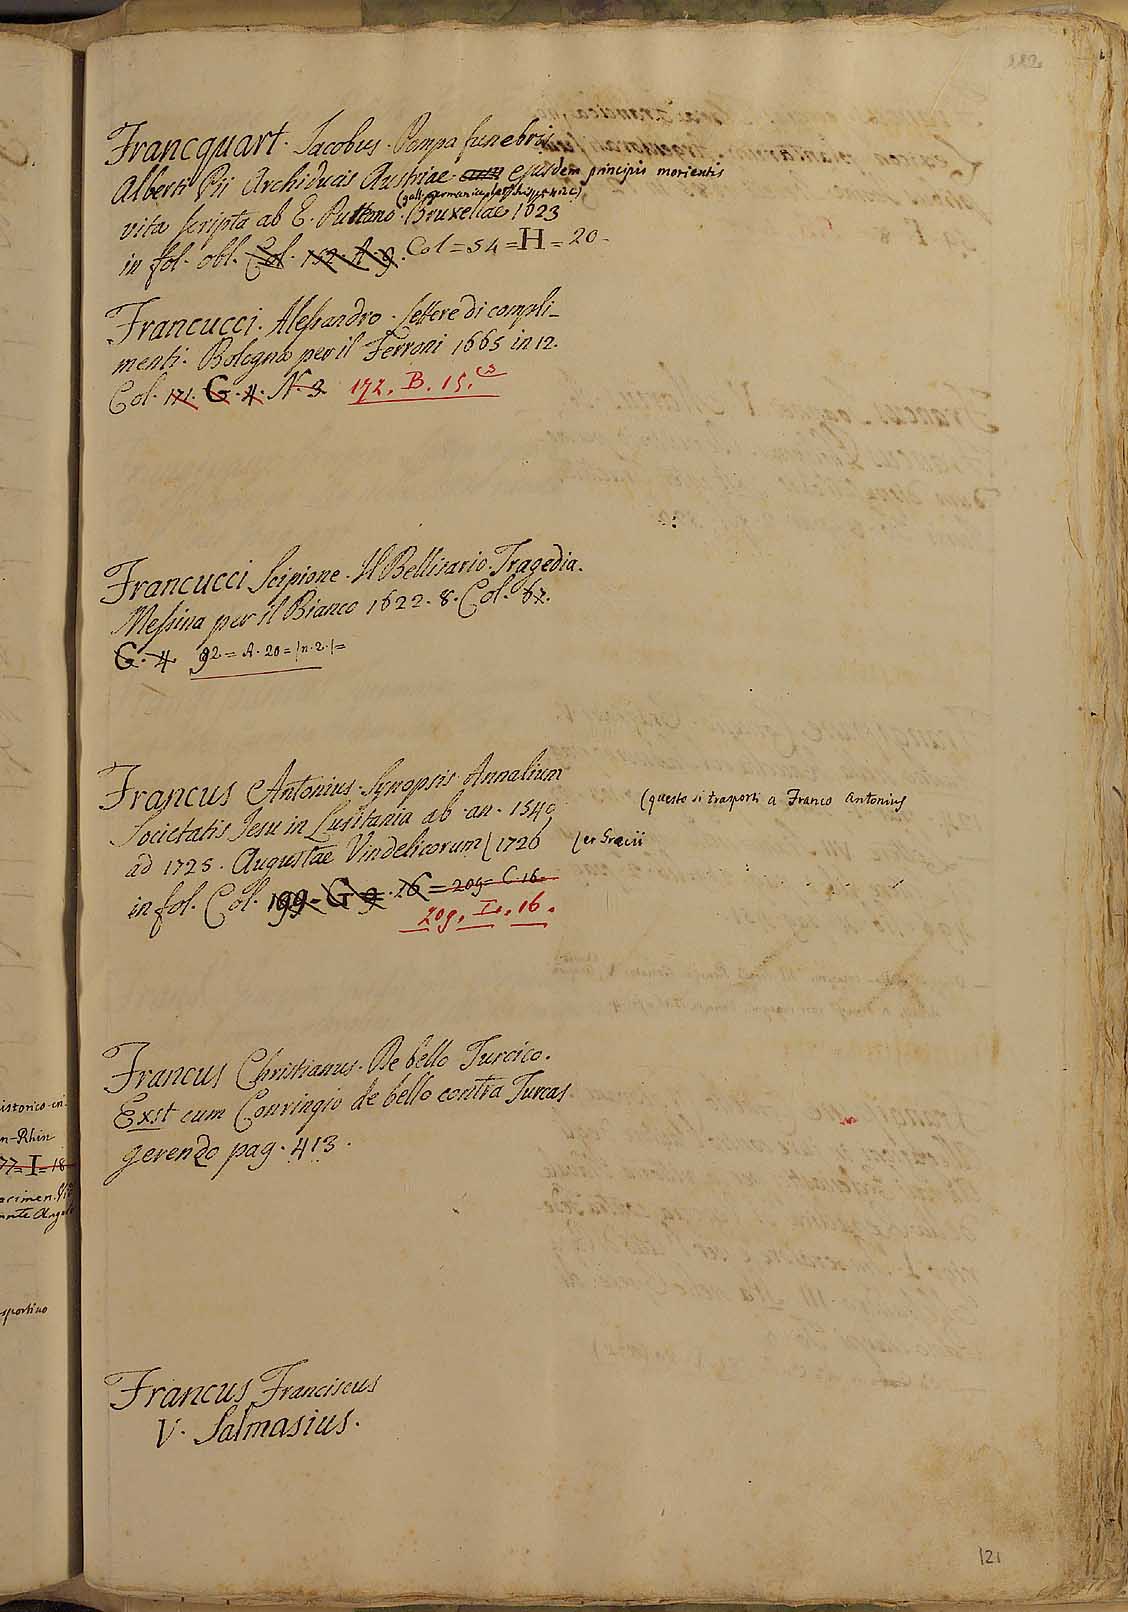 Francquart. Jacobus. Pompa funebris
Alberti Pii Archiducis Austriae ejusdem principis morientis
vita scripta ab E. Puttano. Bruxellae 1623
in fol. obl. Col. 152. A. 9. Col = 54 = H = 20 -
Francucci. Alessandro. Lettere di compli-
menti. Bologna per il Ferroni 1665 in 12.
Col. 171. G. 4. N. 3 172. B. 15.
Francucci Scipione. Il Bellisario. Tragedia.
Messina per il Bianco 1622. 8. Col. 67.
G. 4 92 = A. 20 = (n. 2.) =
Francus Antonius. Synopsis Annalium
(questo si trasporti a Franco Antonius
Societatis Jesu in Lusitania ab an. 1540
ad 1725. Augustae Vindelicorum (1726 (et Graecii
in fol. Col. 199. G. 9. 26 = 209 = C. 16
209. I. 16.
Francus Christianus. De bello Turcico.
Exst cum Conringio de bello contra Turcas
gerendo pag. 413.
Francus Franciscus
V. Salmasius.
istorico-cri-
n-Rhin
77 = I = 18
ecimen
ante Angelo
sportino
121